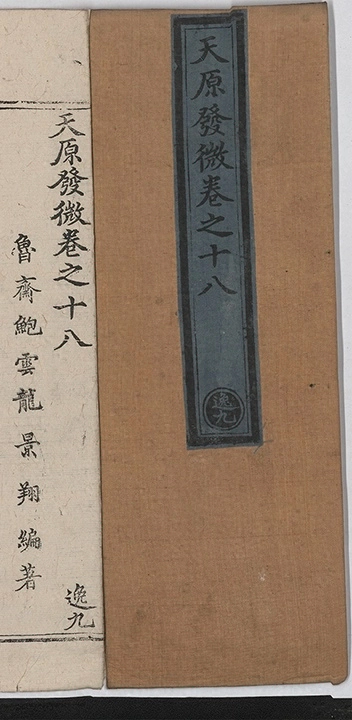 天原發微卷之十八
逸九
天原發微卷之十八
逸九
魯齋鮑雲龍景翔編著